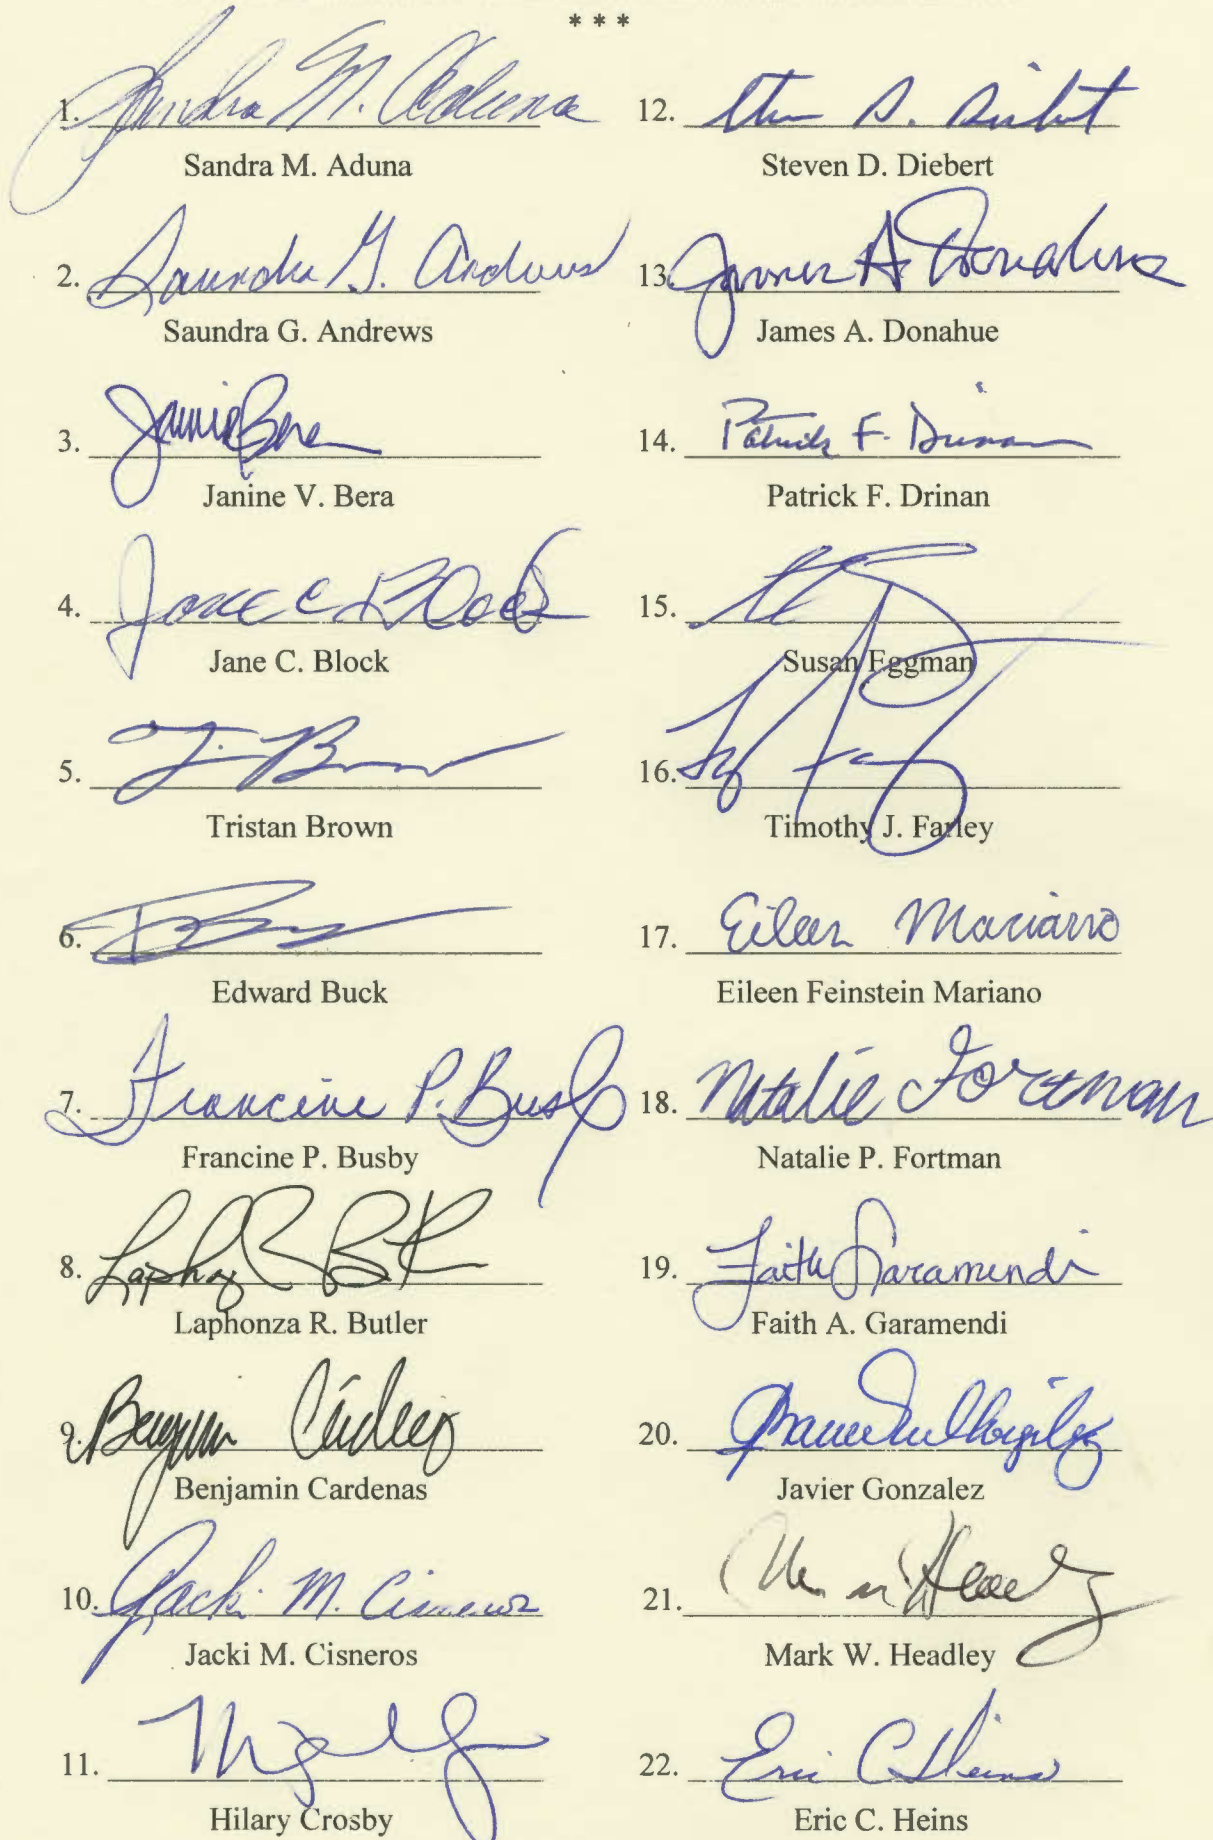 * * *
1. Sandra M. Aduna
Sandra M. Aduna
2. Saundra G. Andrews
Saundra G. Andrews
3. Janine Bera
Janine V. Bera
4. Jane C Block
Jane C. Block
5.
Tristan Brown
6.
Edward Buck
7. Francine P. Busby
Francine P. Busby
8.
Laphonza R. Butler
9. Benjamin
Benjamin Cardenas
10. Jacki M. Cisneros
Jacki M. Cisneros
11.
Hilary Crosby
12.
Steven D. Diebert
13. James A Donahue
James A. Donahue
14. Patrick F. Drinan
Patrick F. Drinan
15.
Susan Eggman
16.
Timothy J. Farley
17. Eileen Mariano
Eileen Feinstein Mariano
18. Natalie Fortman
Natalie P. Fortman
19. Faith Garamendi
Faith A. Garamendi
20.
Javier Gonzalez
21.
Mark W. Headley
22. Eric C. Heins
Eric C. Heins